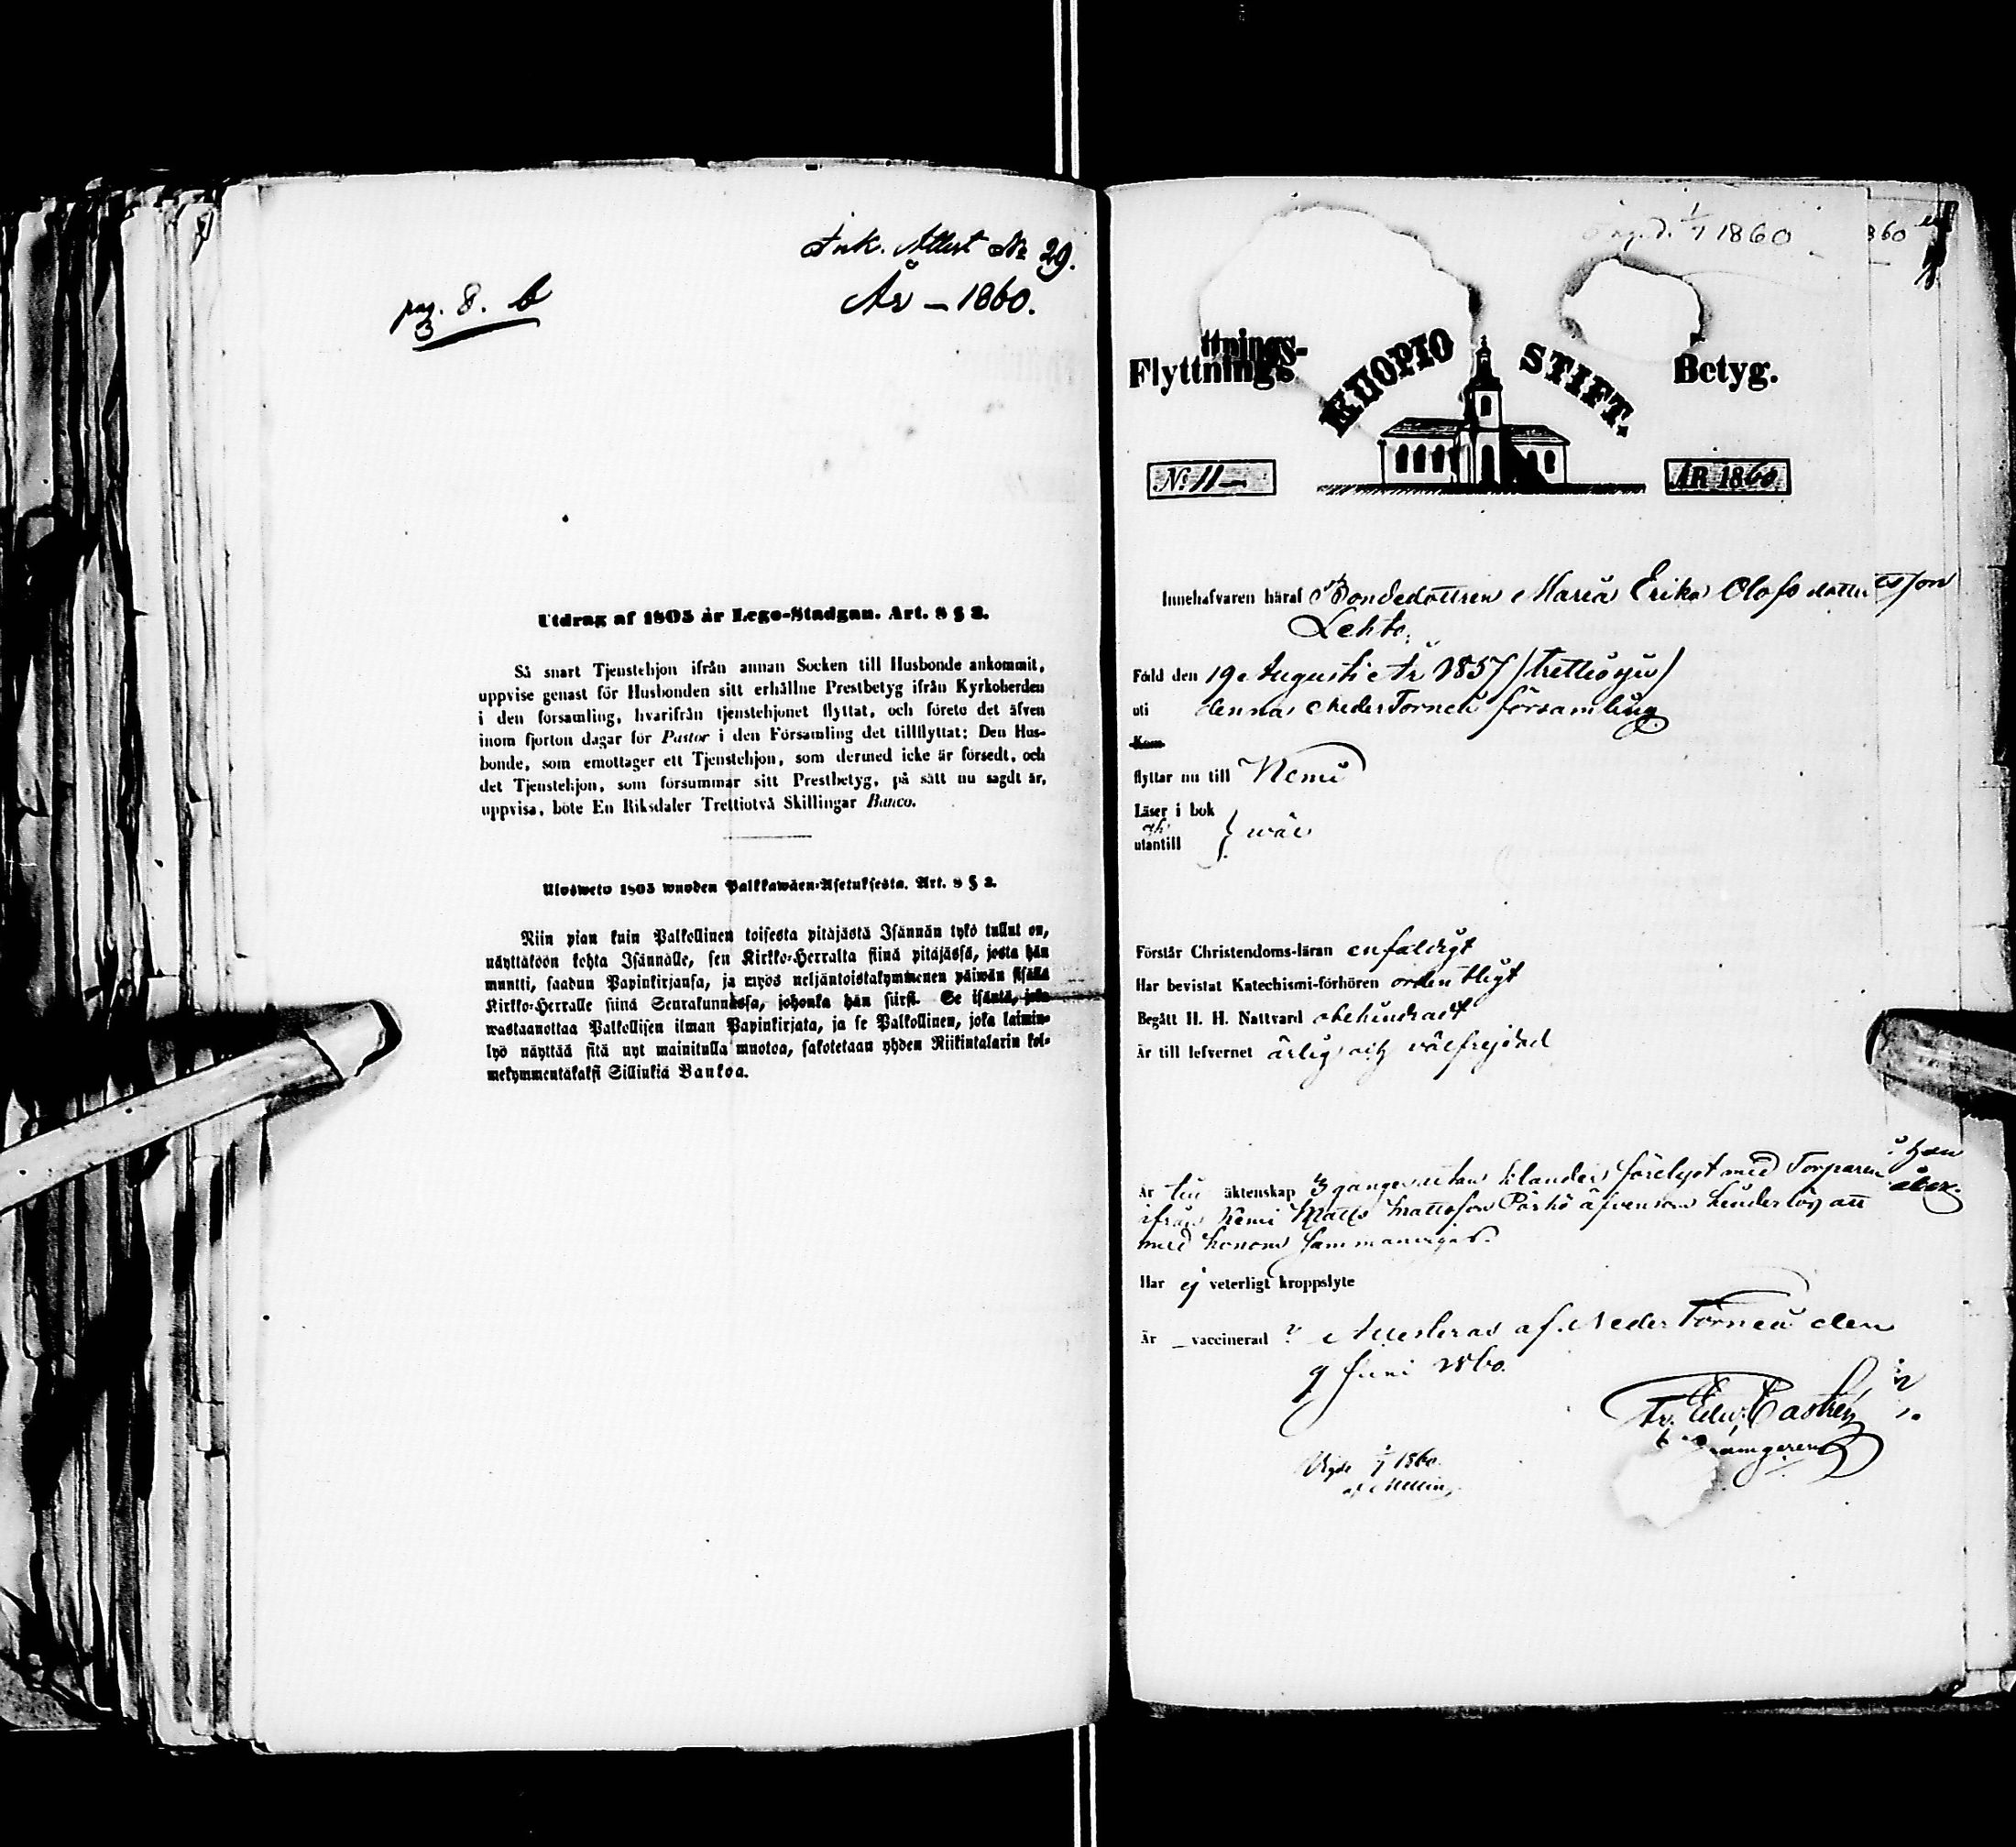 Ink. Attest No 29.
År – 1860.
pag. 8. b
Utdrag af 1805 år Lego-Stadgan. Art. 8 § 2.
Så snart Tjenstehjon ifrån annan Socken till Husbonde ankommit,
uppvise genast för Husbonden sitt erhållne Prestbetyg ifrån Kyrkoherden
i den församling, hvarifrån tjenstehjonet flyttat, och förete det äfven
inom fjorton dagar för Pastor i den Församling det tillflyttat; Den Hus-
bonde, som emottager ett Tjenstehjon, som dermed icke är försedt, och
det Tjenstehjon, som försummar sitt Prestbetyg, på sätt nu sagdt är,
uppvisa, böte En Riksdaler Trettiotvå Skillingar Banco.
Ulosweto 1805 wuoden Palkkawäen-Asetuksesta. Art. 8 § 2.
Niin pian kuin Palkollinen toisesta pitäjästä Isännän tykö tullut on,
näyttäköön kohta Isännälle, sen Kirkko-Herralta siinä pitäjässä, josta hän
muutti, saadun Papinkirjansa, ja myös neljäntoistakymmenen päiwän sisällä
Kirkko-Herralle siinä Seurakunnassa, johonka hän siirsi. Se isäntä, joka
wastaanottaa Palkollisen ilman Papinkirjata, ja se Palkollinen, joka laimin-
lyö näyttää sitä nyt mainitulla muotoa, sakotetaan yhden Riikintalarin kol-
mekymmentäkaksi Sillinkiä Bankoa.
1/7 1860
860
ttnings-
Flyttnings
KUOPIO STIFT.
Betyg.
No 11 –
ÅR 1860
Innehafvaren häraf Bondedottren Maria Erika Olofsdotter
Lehto,
Född den 19 Augusti År 1837 (trettiosju)
uti denna Neder Torneå församling
Kom
flyttar nu till Kemi
Läser i bok
och
utantill } wäl
Förstår Christendoms-läran enfaldigt
Har bevistat Katechismi-förhören ordentligt
Begått H. H. Nattvard obehindradt
Är till lefvernet ärlig och välfrejdad
Är till äktenskap 3 gånger utan klander förelyst med Torparen
ifrån Kemi Matts Mattsson Pörhö äfvensom hinderlös att
med honom sammanvigas.
Har ej veterligt kroppslyte
Är – vaccinerad ? Attesteras af Neder Torneå den
9 Juni 1860.
Fr. Edw. Castrén
Vigde 1/7 1860.